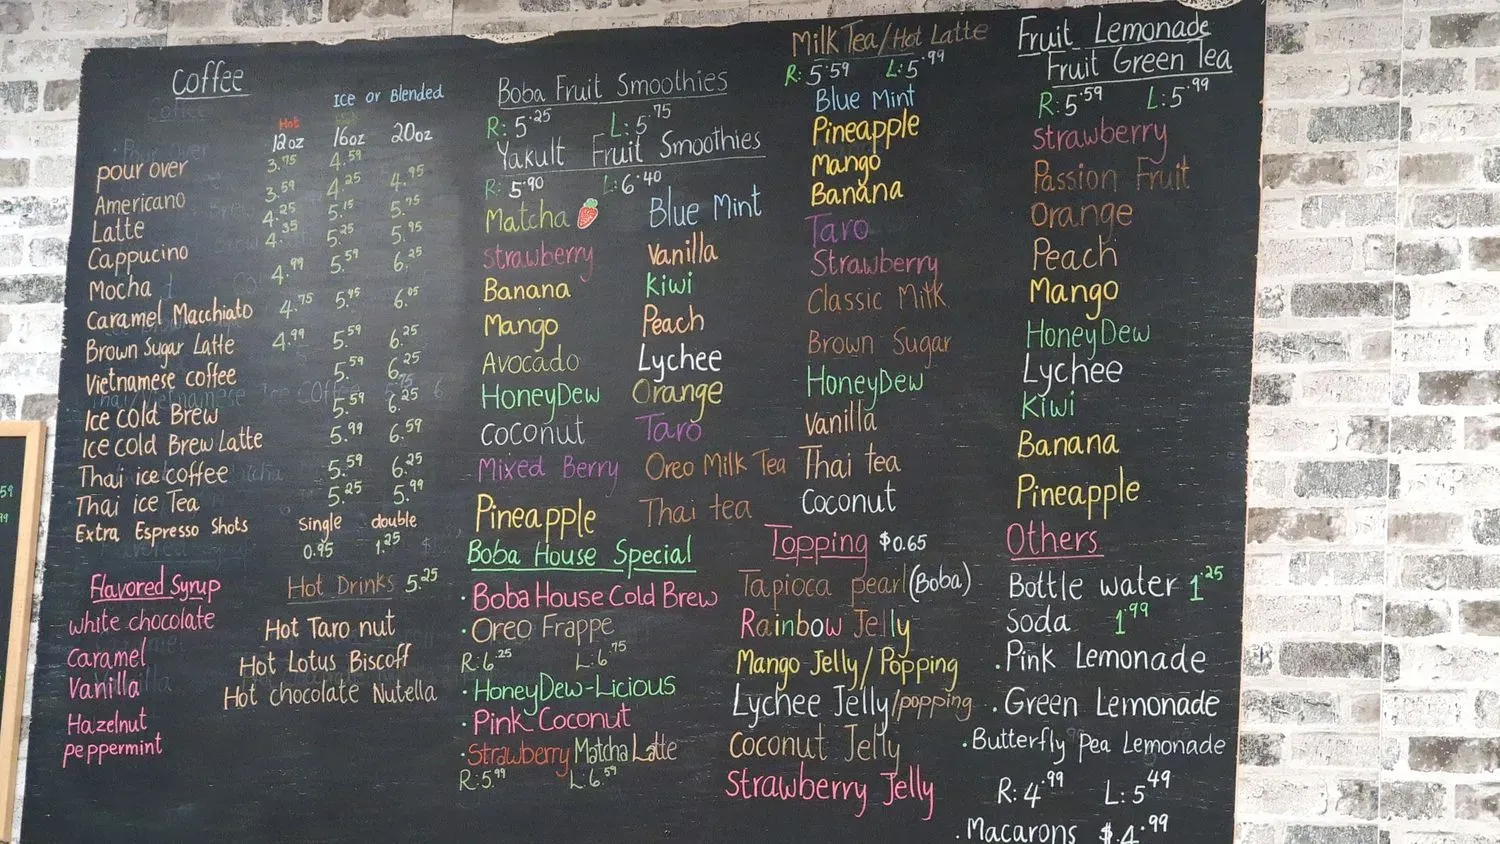 Coffee
Ice or Blended
Hot
12oz 16oz 20oz
pour over 3.75 4.59
Americano 3.59 4.25 4.95
Latte 4.25 5.15 5.75
Cappucino 4.35 5.25 5.95
Mocha 4.99 5.59 6.25
Caramel Macchiato 4.75 5.45 6.05
Brown Sugar Latte 4.99 5.59 6.25
Vietnamese coffee 5.59 6.25
Ice cold Brew 5.59 6.25
Ice cold Brew Latte 5.99 6.59
Thai ice coffee 5.59 6.25
Thai ice Tea 5.25 5.99
Extra Espresso Shots single double
0.95 1.25
Flavored Syrup
white chocolate
Caramel
Vanilla
Hazelnut
peppermint
Hot Drinks 5.25
Hot Taro nut
Hot Lotus Biscoff
Hot chocolate Nutella
Boba Fruit Smoothies
R: 5.25 L: 5.75
Yakult Fruit Smoothies
R: 5.90 L: 6.40
Matcha Blue Mint
strawberry Vanilla
Banana Kiwi
Mango Peach
Avocado Lychee
HoneyDew Orange
Coconut Taro
Mixed Berry Oreo Milk Tea
Pineapple Thai tea
Boba House Special
· Boba House Cold Brew
· Oreo Frappe
R: 6.25 L: 6.75
· HoneyDew-Licious
· Pink Coconut
· Strawberry Matcha Latte
R: 5.99 L: 6.59
Milk Tea/Hot Latte
R: 5.59 L: 5.99
Blue Mint
Pineapple
Mango
Banana
Taro
Strawberry
Classic Milk
Brown Sugar
HoneyDew
Vanilla
Thai tea
Coconut
Topping $0.65
Tapioca pearl (Boba)
Rainbow Jelly
Mango Jelly/Popping
Lychee Jelly/popping
Coconut Jelly
Strawberry Jelly
Fruit Lemonade
Fruit Green Tea
R: 5.59 L: 5.99
strawberry
Passion Fruit
Orange
Peach
Mango
HoneyDew
Lychee
Kiwi
Banana
Pineapple
Others
Bottle water 1.25
Soda 1.99
· Pink Lemonade
· Green Lemonade
· Butterfly Pea Lemonade
R: 4.99 L: 5.49
· Macarons $4.99